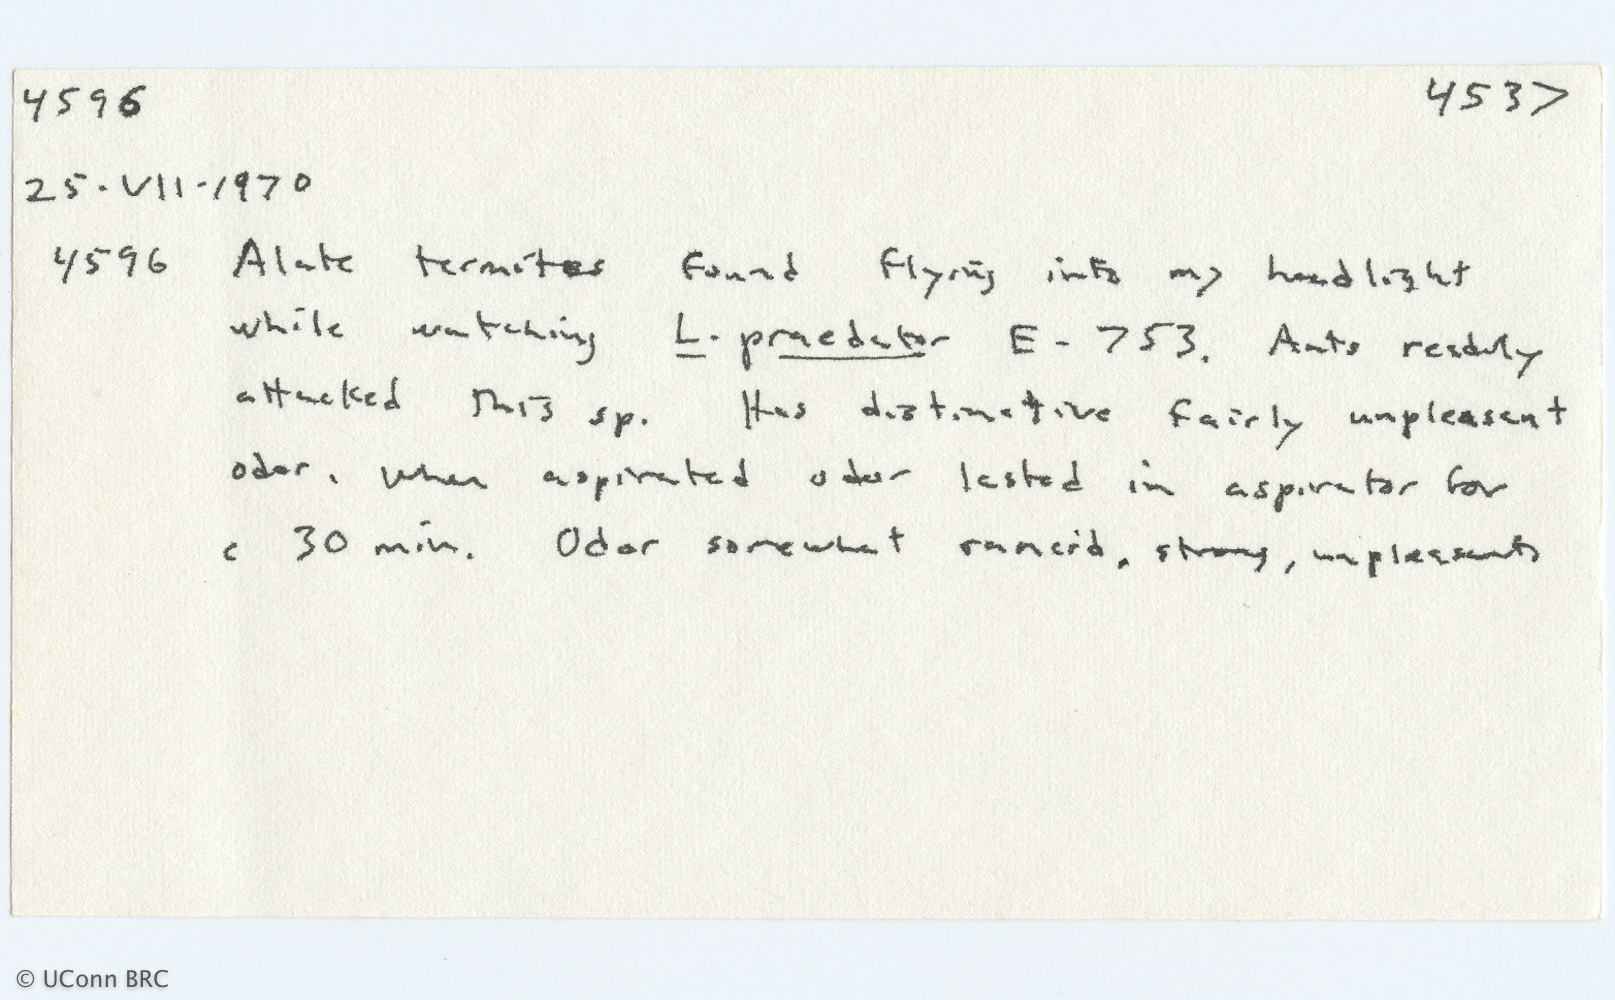 4596 4537
25·VII·1970
4596 Alate termites found flying into my headlight
while watching L. praedator E-753. Ants readily
attacked this sp. Has distinctive fairly unpleasant
odor. When aspirated odor lasted in aspirator for
c 30 min. Odor somewhat rancid, strong, unpleasant
© UConn BRC